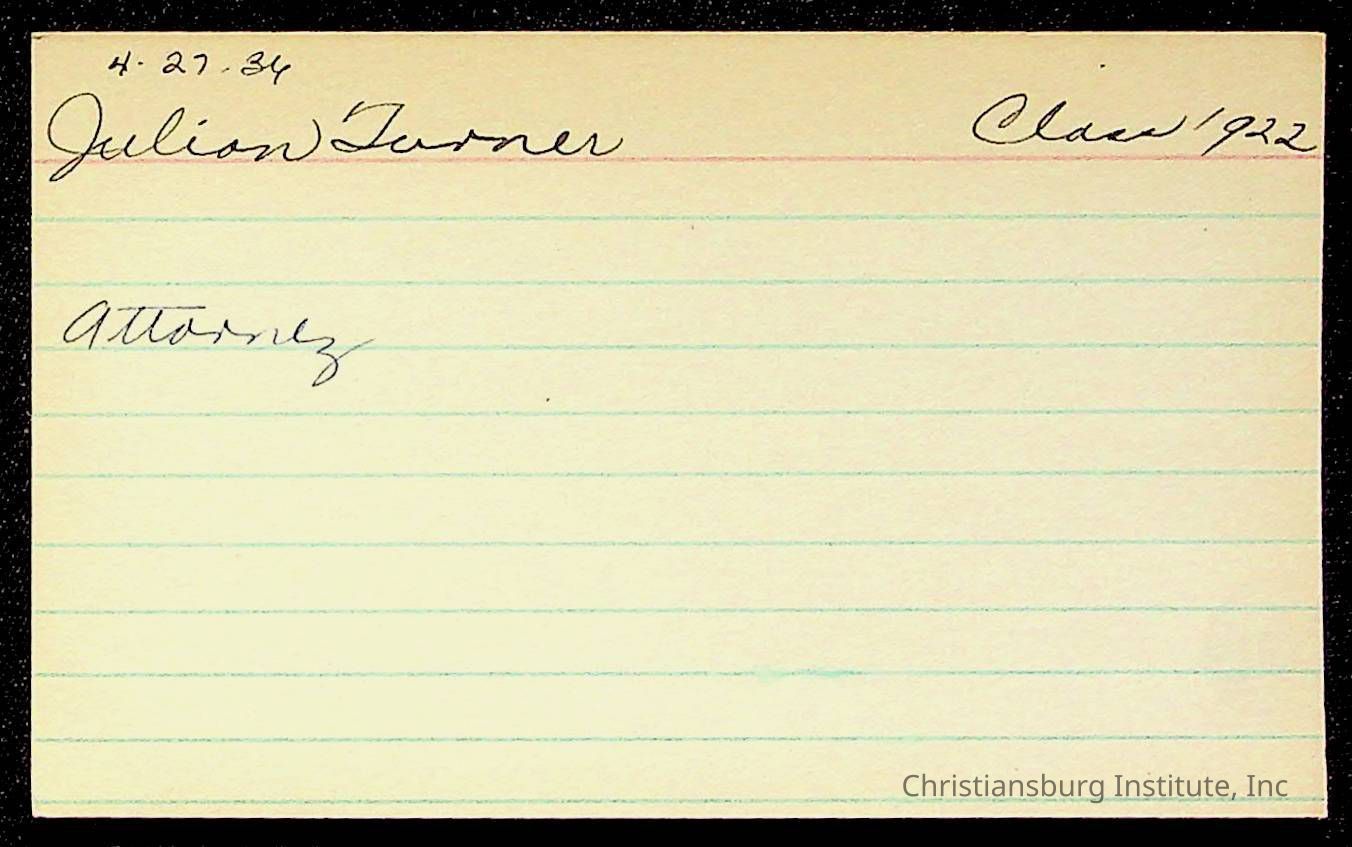 4-27-36
Julian Turner Class 1922
Attorney
Christiansburg Institute, Inc